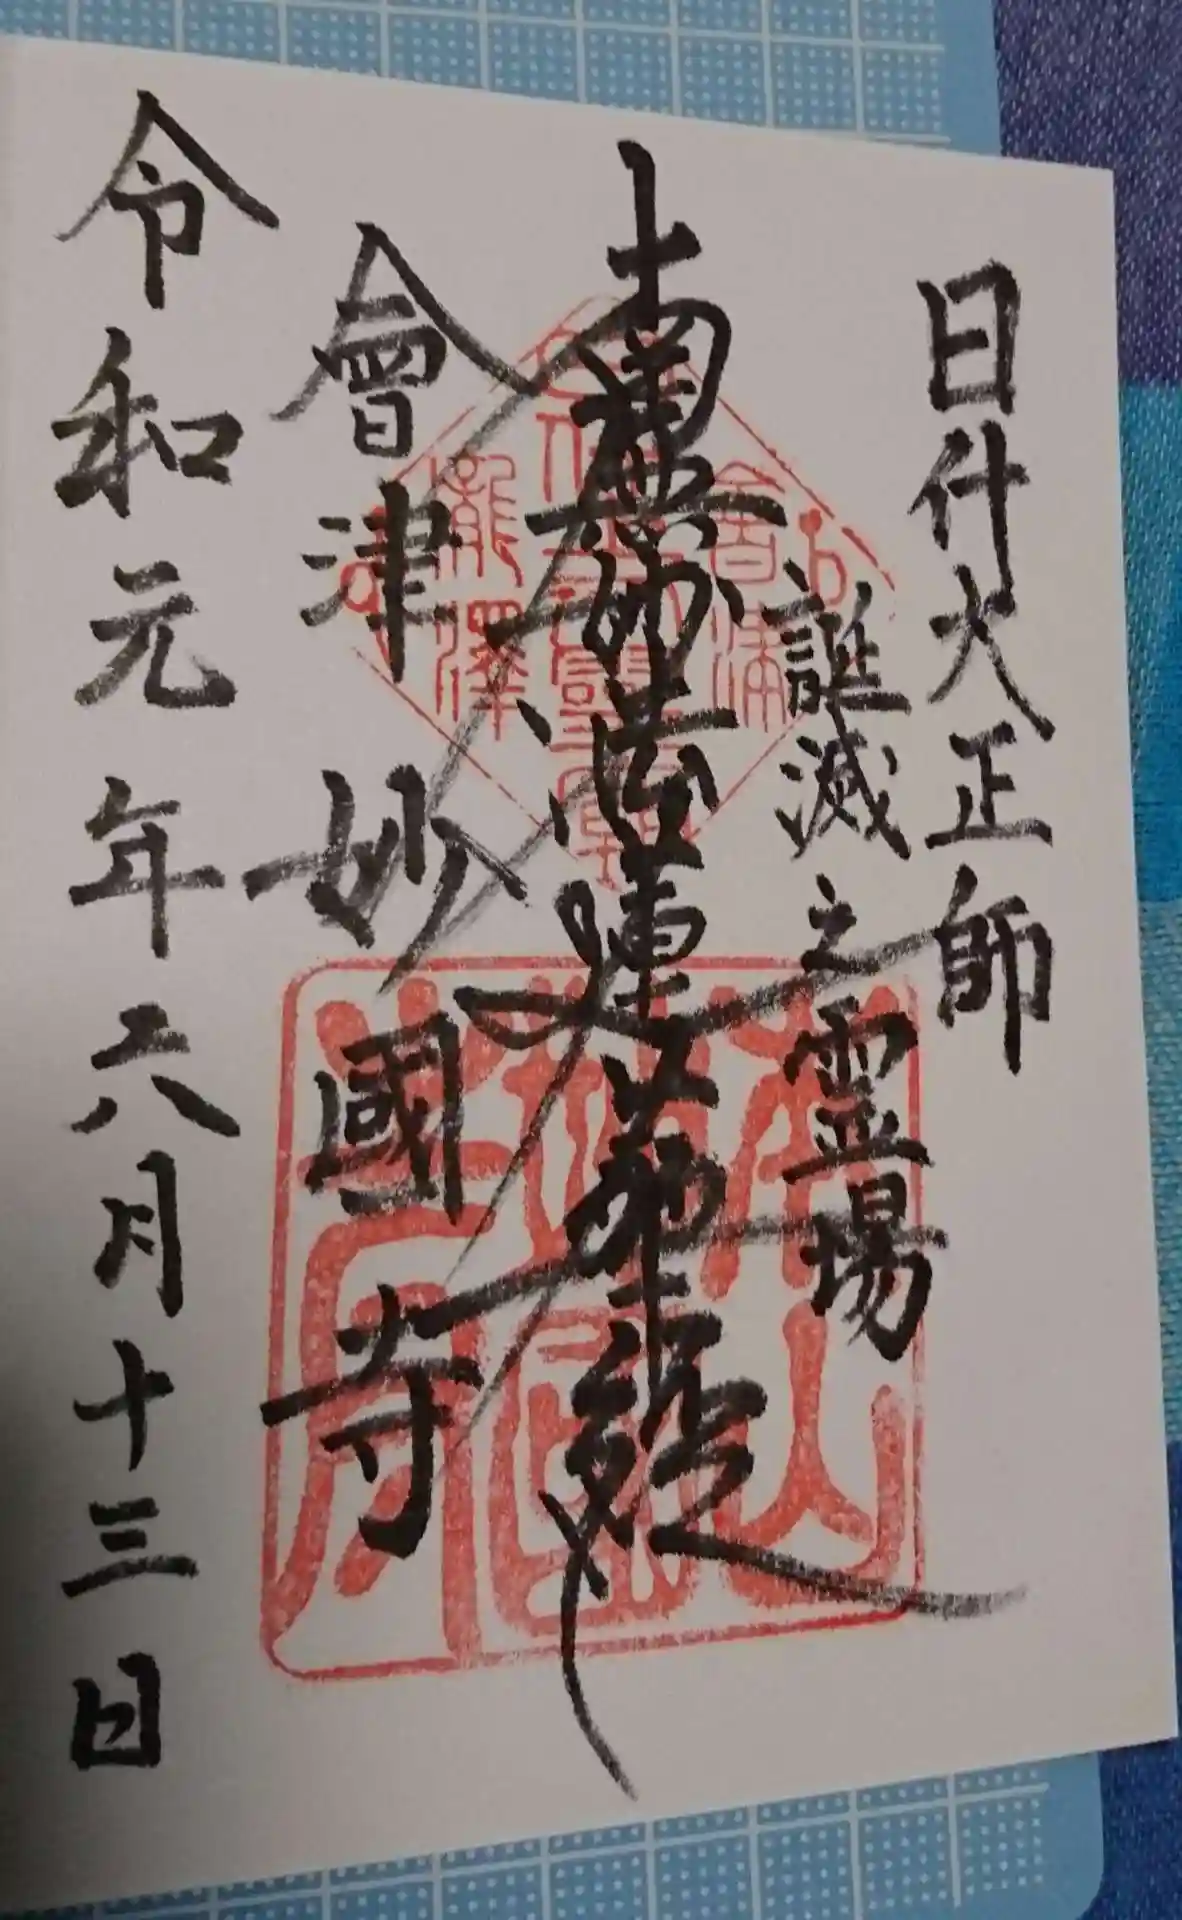 日什大正師
誕滅之霊場
南無妙法蓮華経
會津妙國寺
令和元年六月十三日